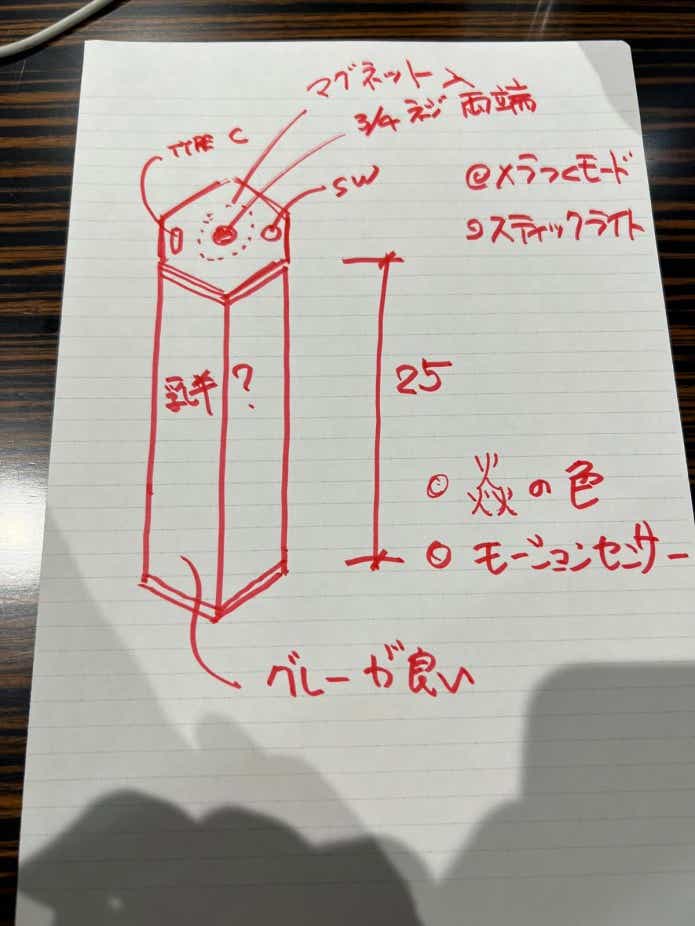 マグネット入
3/4 ネジ 両端
TYPE C
SW
@メラつくモード
スティックライト
乳半?
25
○ 焱の色
○ モーションセンサー
グレーが良い